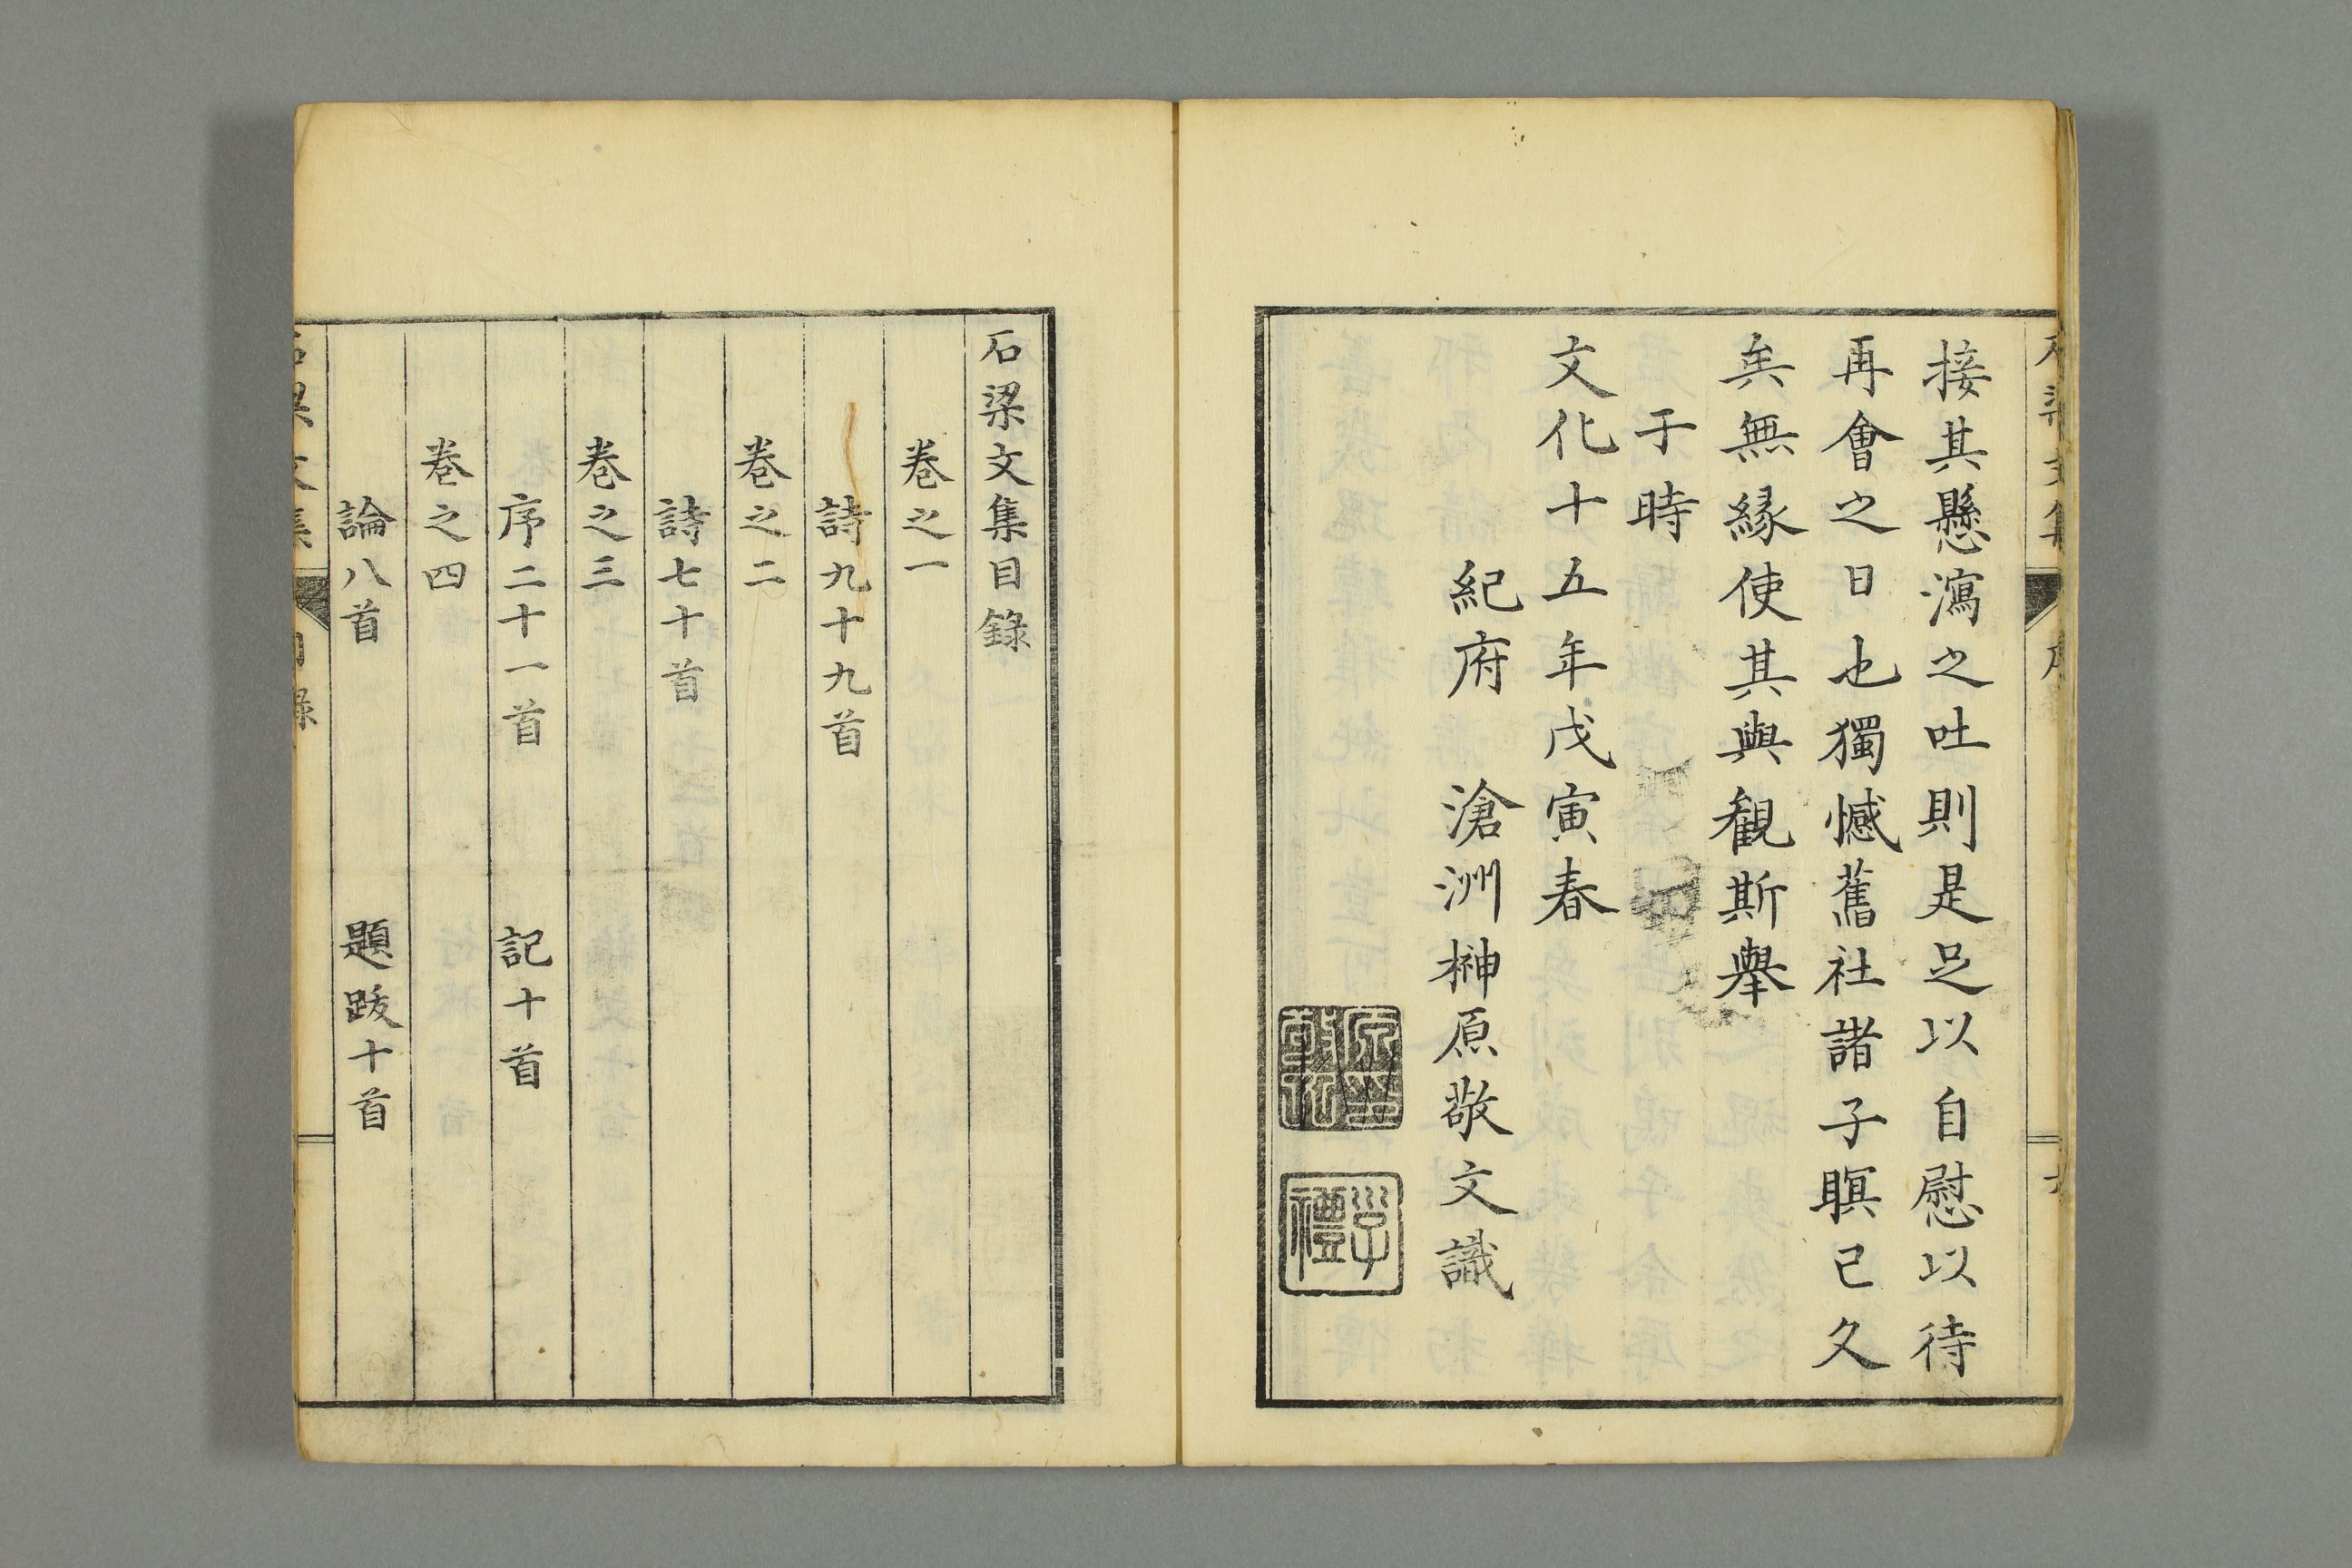 接其懸瀉之吐則是足以自慰以待
再會之日也獨憾舊社諸子瞑已久
矣無緣使其與観斯舉
于時
文化十五年戊寅春
紀府　滄洲榊原敬文識
學禮
石梁文集目錄
巻之一
詩九十九首
巻之二
詩七十首
巻之三
序二十一首　記十首
巻之四
論八首　題跋十首